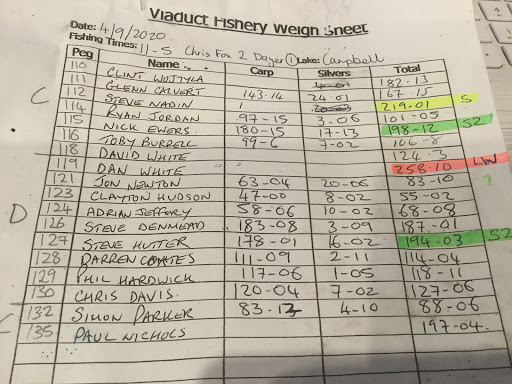 Viaduct Fishery Weigh Sheet
Date: 4/9/2020
Fishing Times: 11-5 Chris Fox 2 Dayer ① Lake: Campbell
Peg Name Carp Silvers Total
110 CLINT WOJTYLA 182-13
111 GLENN CALVERT 143-14 24-01 167-15
C 112 STEVE NADIN 219-01 S
114 RYAN JORDAN 97-15 3-06 101-05
115 NICK EWERS 180-15 17-13 198-12 S2
116 TOBY BURRELL 99-6 7-02 106-8
118 DAVID WHITE 124-3
119 DAN WHITE 258-10 WIN
121 JON NEWTON 63-04 20-06 83-10 ?
123 CLAYTON HUDSON 47-00 8-02 55-02
D 124 ADRIAN JEFFORY 58-06 10-02 68-08
126 STEVE DENMEAD 183-08 3-09 187-01
127 STEVE HUTTER 178-01 16-02 194-03 S2
128 DARREN COATES 111-09 2-11 114-04
129 PHIL HARDWICK 117-06 1-05 118-11
130 CHRIS DAVIS. 120-04 7-02 127-06
132 SIMON PARKER 83-12 4-10 88-06
135 PAUL NICHOLS 197-04.